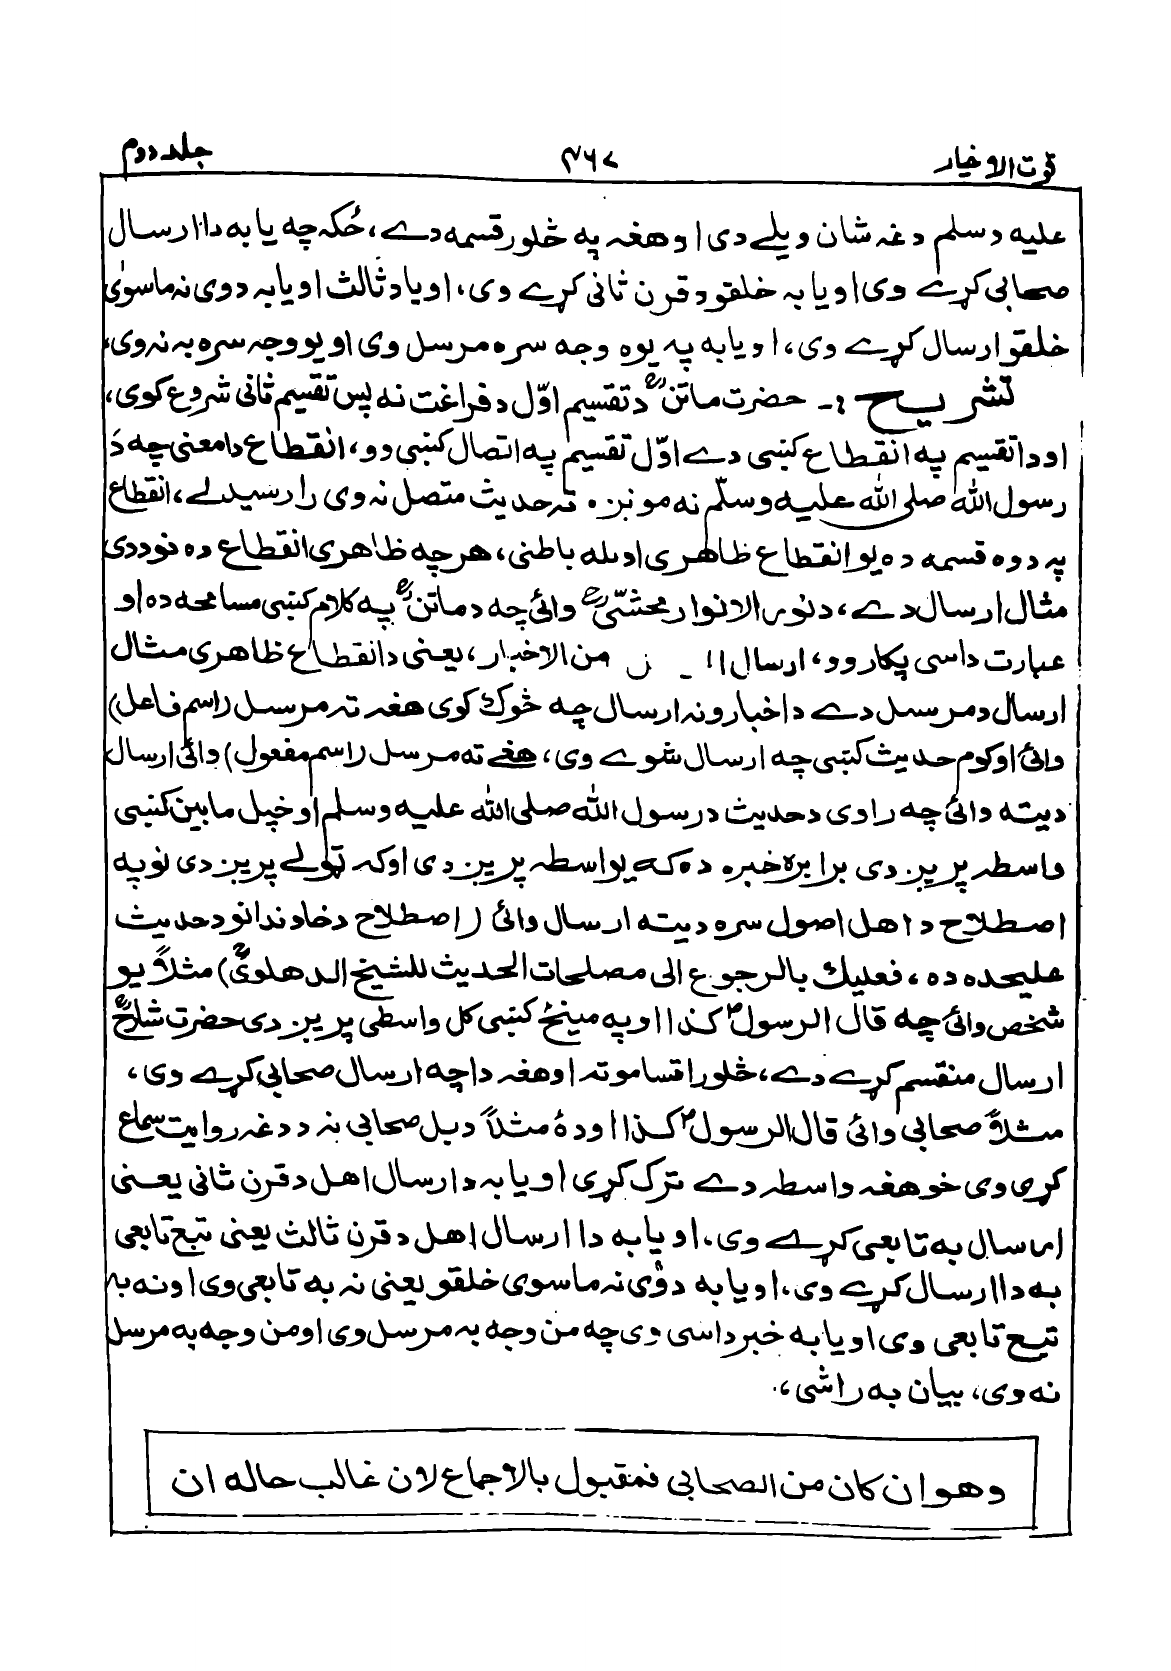 قوت الاخیار ۴۶۷ جلد دوم
علیه وسلم دغه شان ویلے دی او هغه په څلور قسمه دے، ځکه چه یا به دا ارسال
صحابی کړے وی او یا به خلقو د قرن ثانی کړے وی، او یا د ثالث او یا به د وی نه ماسوٰی
خلقو ارسال کړے وی، او یا به په یوه وجه سره مرسل وی او یو وجه سره به نه وی،
تشریح :- حضرت ماتنؒ د تقسیم اوّل د فراغت نه پس تقسیم ثانی شروع کوی،
او دا تقسیم په انقطاع کښی دے اوّل تقسیم په اتصال کښی وو، انقطاع دا معنی چه دَ
رسول الله صلی الله علیه وسلّم نه مونږه ته حدیث متصل نه وی را رسیدلے، انقطاع
په دوه قسمه ده یو انقطاع ظاهری او بله باطنی، هر چه ظاهری انقطاع ده نو د دی
مثال ارسال دے، د نور الانوار محشّیؒ وائی چه د ماتنؒ په کلام کښی مسامحه ده او
عبارت داسی پکار وو، ارسال من الاخبار، یعنی د انقطاع ظاهری مثال
ارسال د مرسل دے د اخبارو نه ارسال چه څوک کوی هغه ته مرسل (اسم فاعل)
وائی او کوم حدیث کښی چه ارسال شوے وی، هغے ته مرسل (اسم مفعول) وائی ارسال
دیته وائی چه راوی د حدیث د رسول الله صلی الله علیه وسلم او خپل مابین کښی
واسطه پریږدی برابره خبره ده که یو واسطه پریږدی او که ټولے پریږدی نو په
اصطلاح د اهل اصول سره دیته ارسال وائی (اصطلاح د خاوندانو د حدیث
علیحده ده، فعلیك بالرجوع الی مصلحات الحدیث للشیخ الدهلویؒ) مثلاً یو
شخص وائی چه قال الرسولؐ کذا او په مینځ کښی کل واسطی پریږدی حضرت شارحؒ
ارسال منقسم کړے دے، څلورا قساموته او هغه دا چه ارسال صحابی کړے وی،
مثلاً صحابی وائی قال الرسولؐ کذا او دهٔ مثلاً د بل صحابی نه د دغه روایت سماع
کړی وی خو هغه واسطه دے ترک کړی او یا به دا ارسال اهل د قرن ثانی یعنی
ارسال به تابعی کړے وی، او یا به دا ارسال اهل د قرن ثالث یعنی تبع تابعی
به دا ارسال کړے وی، او یا به دؤی نه ماسوی خلقو یعنی نه به تابعی وی او نه به
تبع تابعی وی او یا به خبر داسی وی چه من وجه به مرسل وی او من وجه به مرسل
نه وی، بیان به راشی،
وهو ان کان من الصحابی فمقبول بالاجماع لان غالب حاله ان